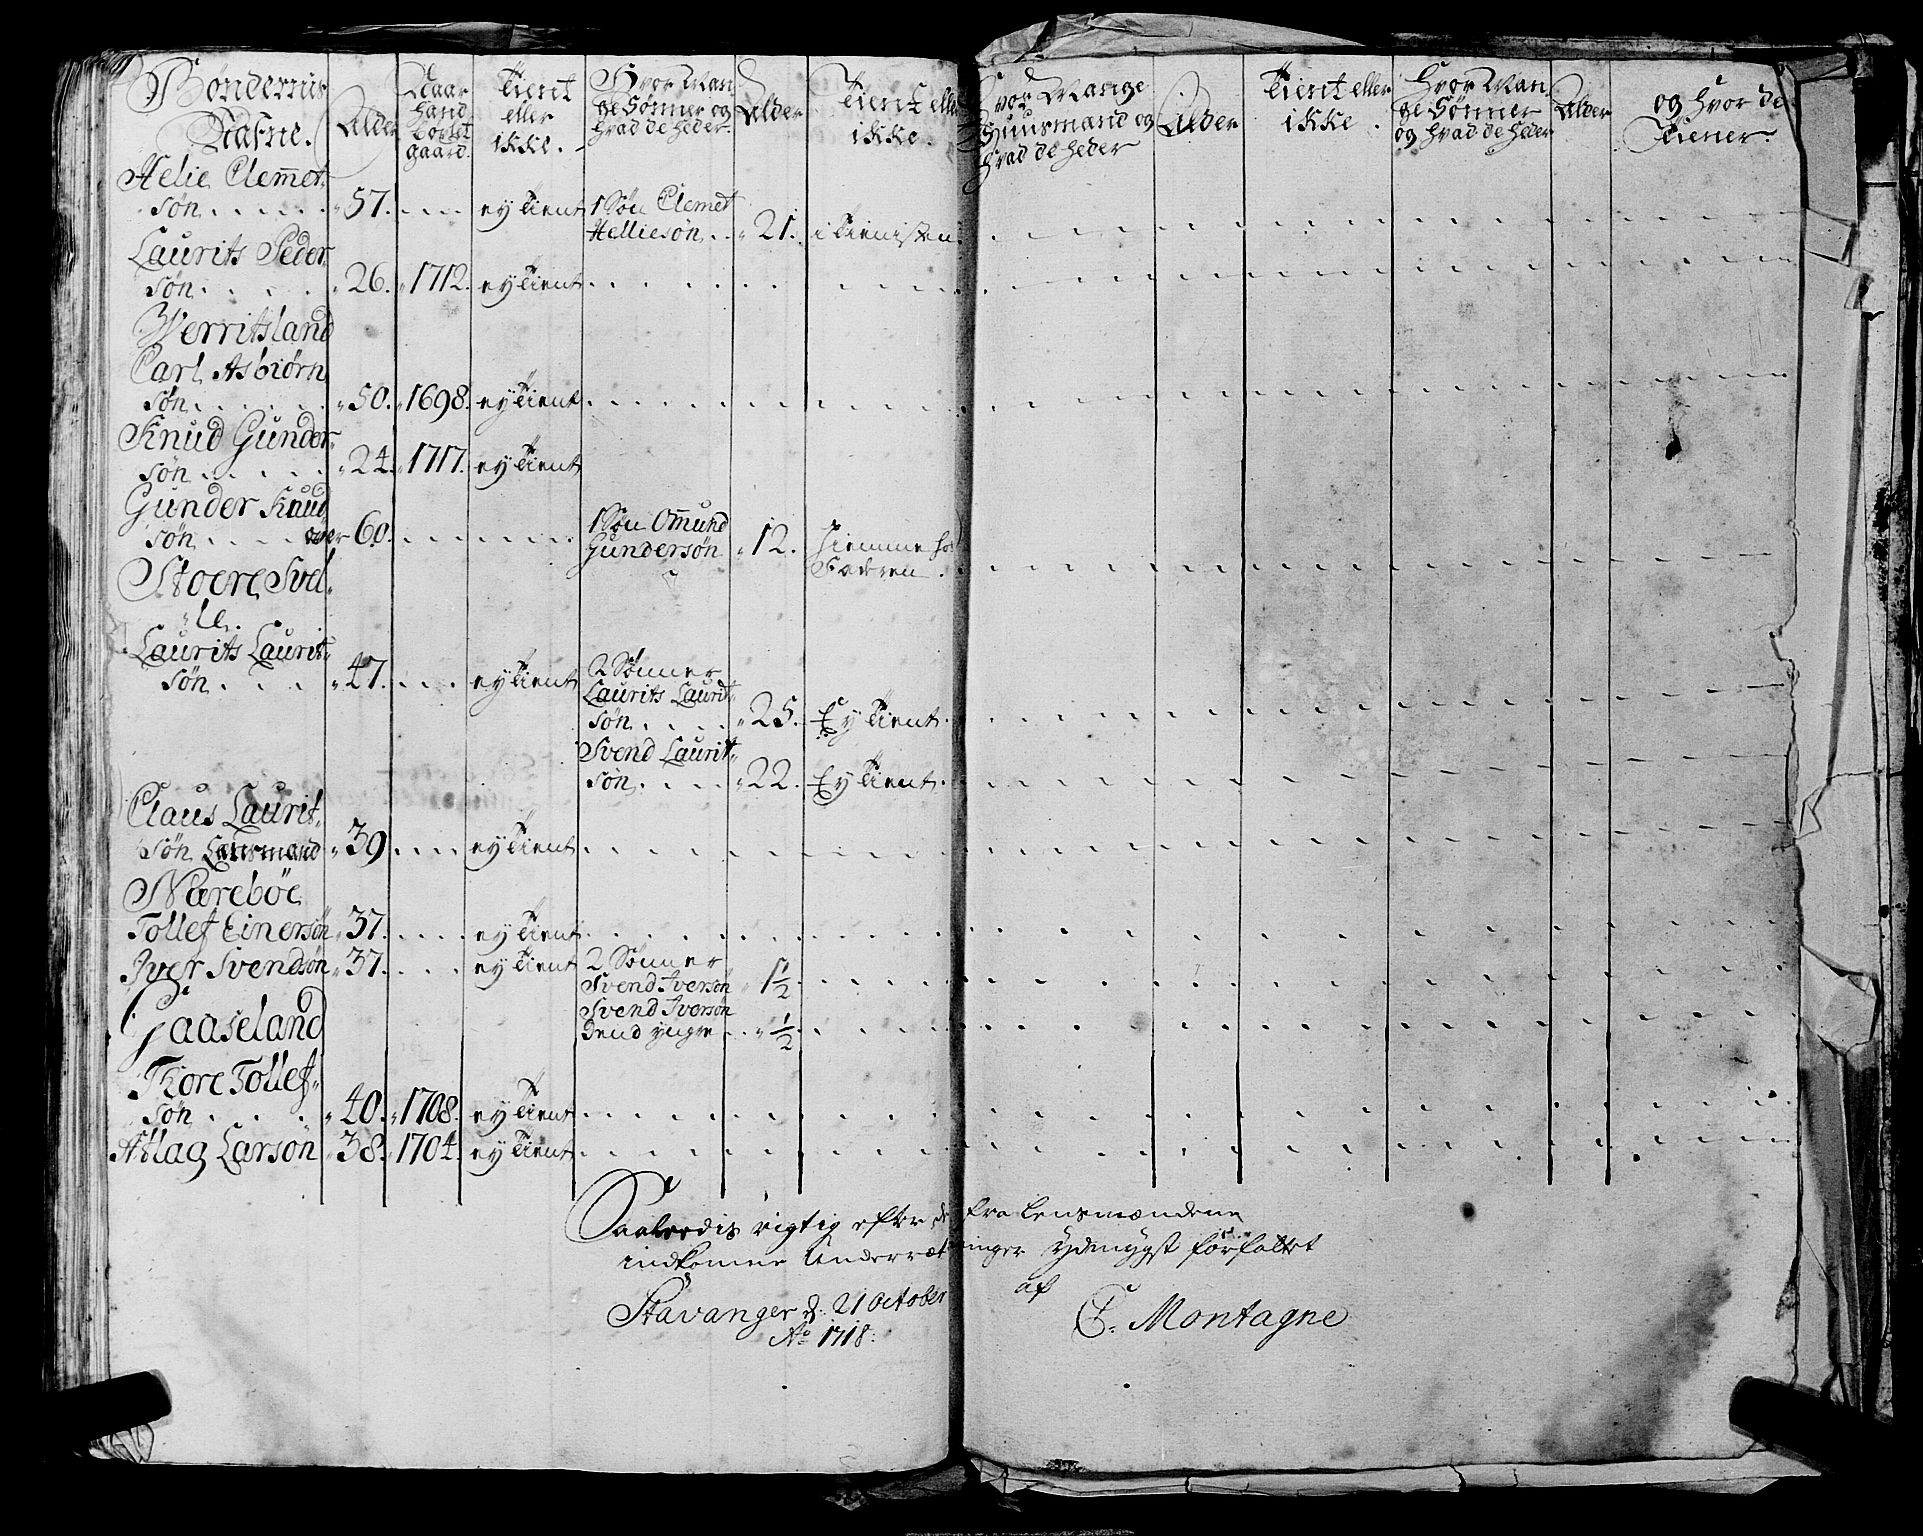 Bøndernis
Nafne.
Alder
Naar
hand
boxlet
gaard.
Tient
eller
ikke.
Hvor Man
ge Sønner og
hvad de heder.
Alder
Tient eller
ikke.
Hvor Mange
Huusmand og
hvad de heder
Alder
Tient eller
ikke.
Hvor Man
ge Sønner
og hvad de heder
Alder
og hvor de
Tiener.
Helie Clemet
søn 57. ey Tient 1 Søn Clemet
Helliesøn 21. i tienisten
Laurits Peder
søn 26. 1712. ey Tient
Werritsland
Carl Asbiørn
søn 50. 1698. ey Tient
Knud Gunder
søn 24. 1717. ey Tient
Gunder Knud
søn over 60. 1 Søn Omund
Gundersøn 12. hiemme hos
Faderen.
Stoere Svel
le.
Laurits Laurit
søn 47. ey Tient 2 Sønner
Laurits Laurit
søn 25. Ey Tient.
Svend Laurit
søn 22. Ey Tient.
Claus Laurit
søn Lensmand 39 ey Tient
Nærebøe
Tollef Einersøn 37. ey Tient
Iver Svendsøn 37. ey Tient 2 Sønner
Svend Iversøn 1½
Svend Iversøn
Dend yngre ½
Gaaseland
Tore Tollef
søn 40. 1708. ey Tient
Aslag Larsøn 38. 1704. ey Tient
Saaledis rigtig efter de fra Lensmændene
indkomne Underrætninger ydmygst forfattet
af
Stavanger d: 21 October
Ao 1718:
C. Montagne